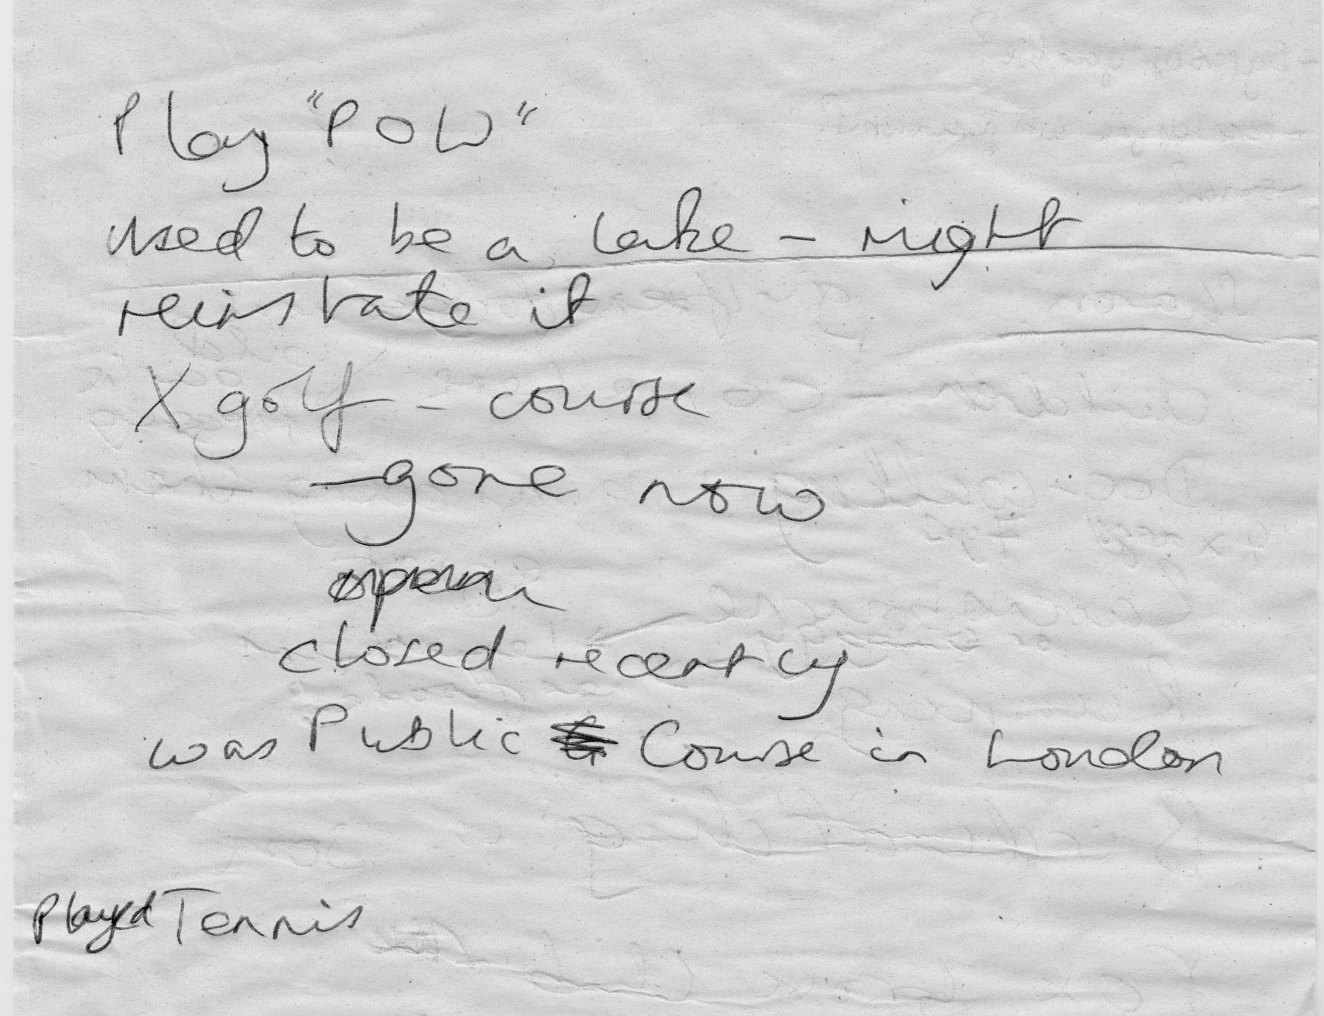 Play "POW"
used to be a lake - might
reinstate it
X golf - course
- gone now
open
closed recently
was Public Course in London
Played Tennis